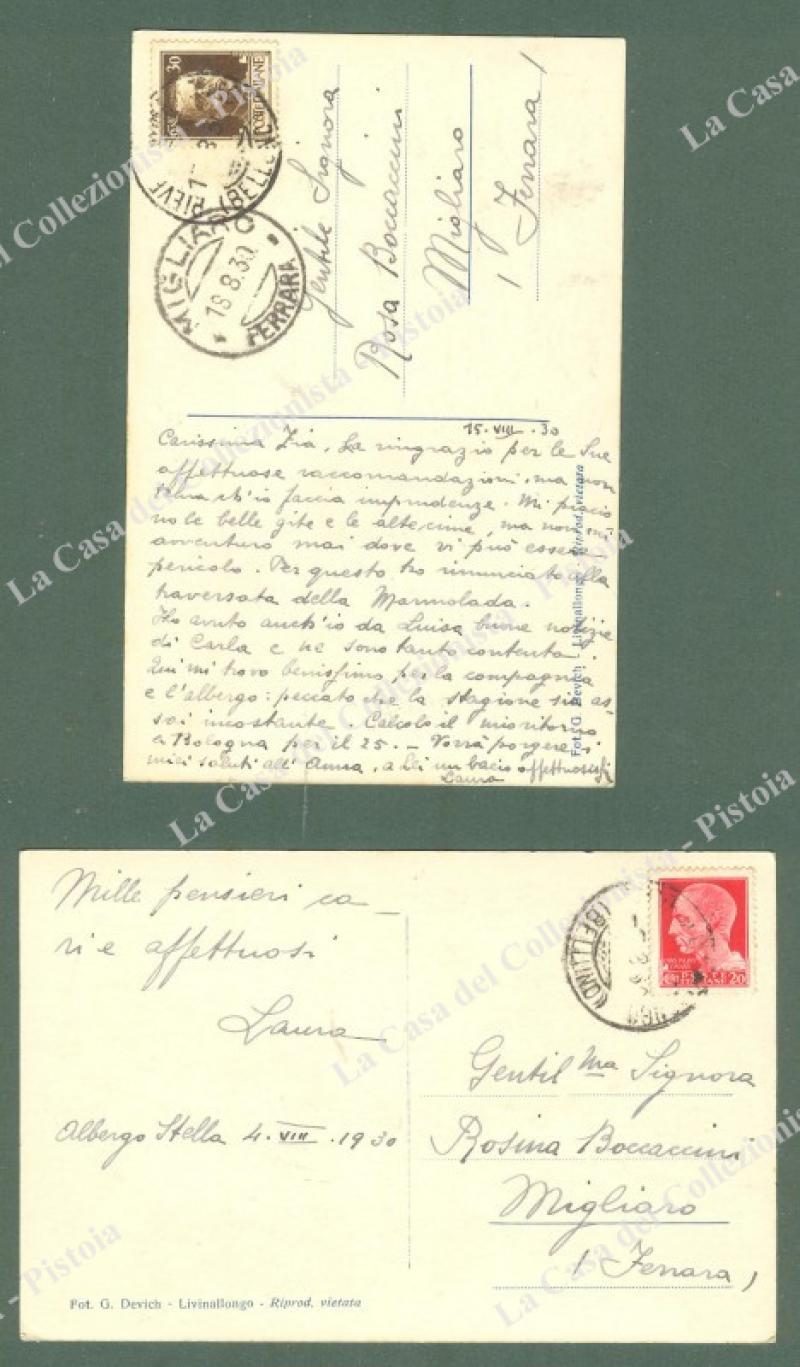 30
POSTE ITALIANE
PIEVE
(BELLUNO)
MIGLIARO
18.8.30
FERRARA
Gentile Signora
Rosa Boccaccini
Migliaro
(Ferrara)
15.VIII.30
Carissima Zia, La ringrazio per le Sue
affettuose raccomandazioni, ma non
tema ch'io faccia imprudenze. Mi piaccio
no le belle gite e le alte cime, ma non mi
avventuro mai dove vi può essere
pericolo. Per questo ho rinunciato alla
traversata della Marmolada.
Ho avuto anch'io da Luisa buone notizie
di Carla e ne sono tanto contenta.
Qui mi trovo benissimo per la compagnia
e l'albergo: peccato che la stagione sia as=
sai incostante. Calcolo il mio ritorno
a Bologna per il 25. – Vorrà porgere i
miei saluti all'Anna, a Lei un bacio affettuosissi
Laura
Fot. G. Devich - Livinallongo - Riprod. vietata
Mille pensieri ca_
ri e affettuosi
Laura
Albergo Stella 4.VIII.1930
Fot. G. Devich - Livinallongo - Riprod. vietata
(BELLUNO)
20
Gentilma Signora
Rosina Boccaccini
Migliaro
(Ferrara)
La Casa del Collezionista - Pistoia